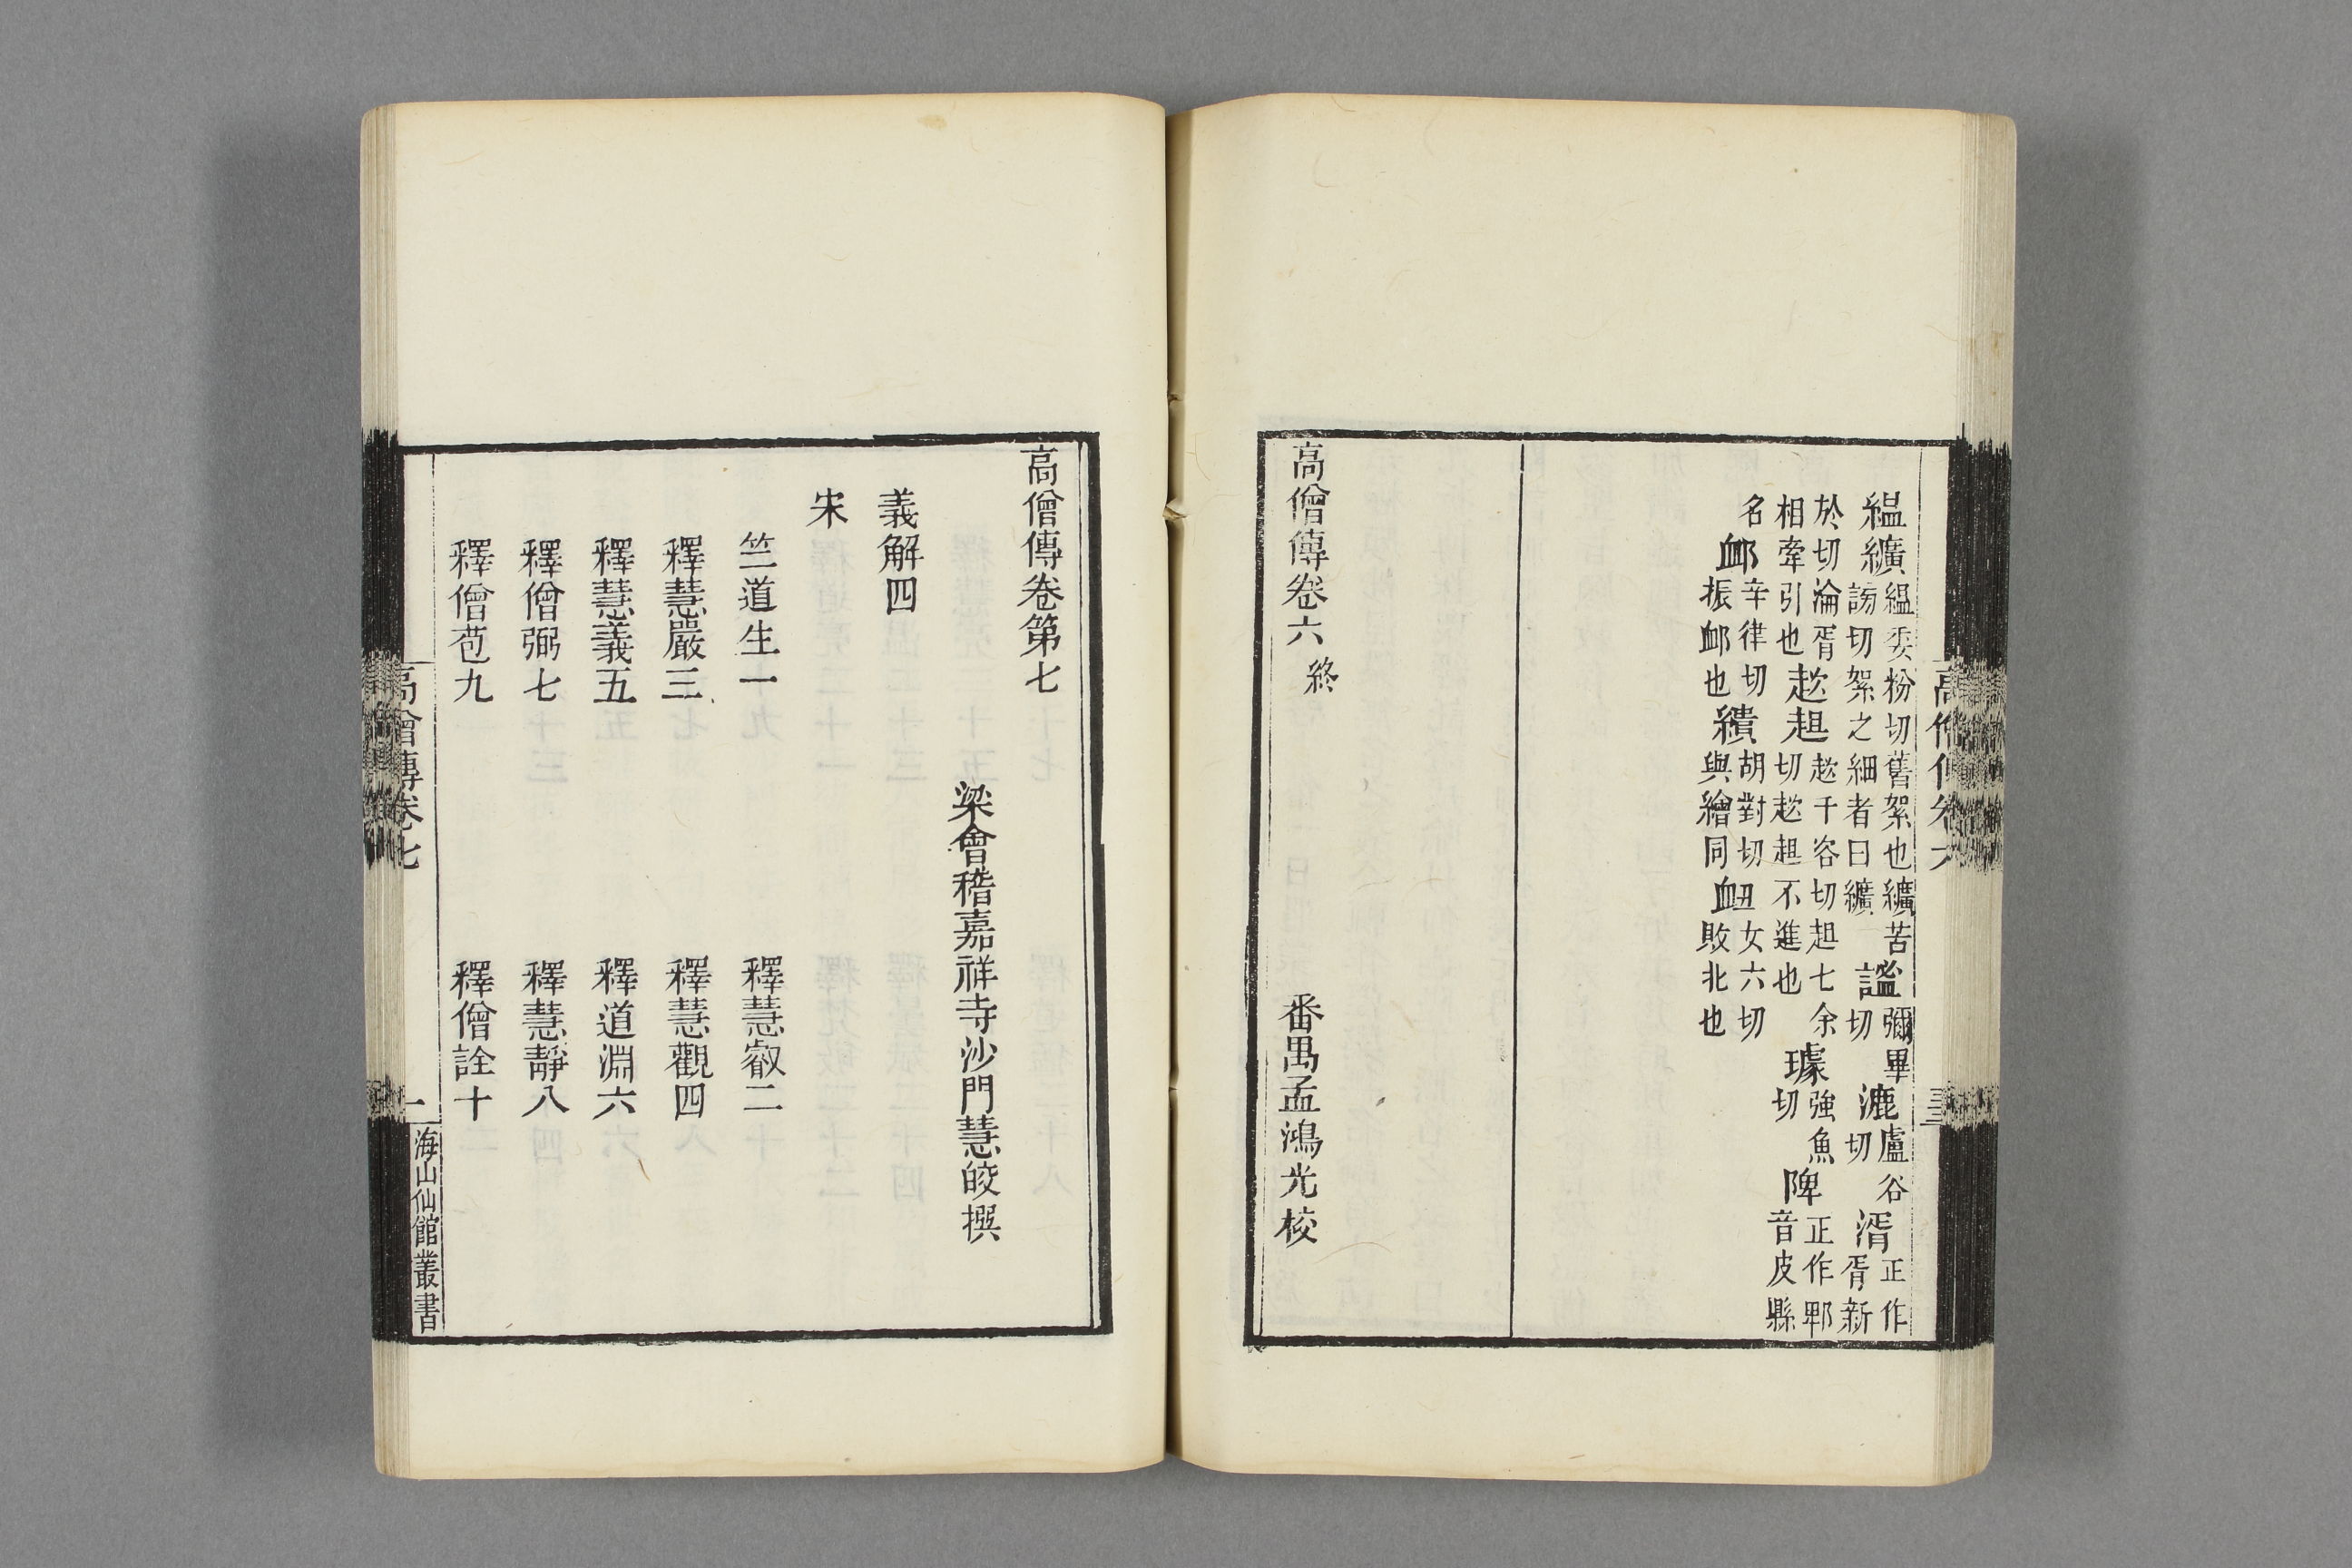 高僧傳卷六
縕纊縕委粉切舊絮也纊苦謗切絮之細者曰纊謐彌畢切漉盧谷切湑正作胥新
於切淪胥相牽引也趑趄趑千咨切趄七余切趑趄不進也璩強魚切陴正作郫音皮縣
名卹辛律切振卹也繢胡對切與繪同衄女六切敗北也
高僧傳卷六 終 番禺孟鴻光校
高僧傳卷第七
梁會稽嘉祥寺沙門慧皎撰
義解四
宋
竺道生一 釋慧叡二
釋慧嚴三 釋慧觀四
釋慧義五 釋道淵六
釋僧弼七 釋慧靜八
釋僧苞九 釋僧詮十
高僧傳卷七 一 海山仙館叢書